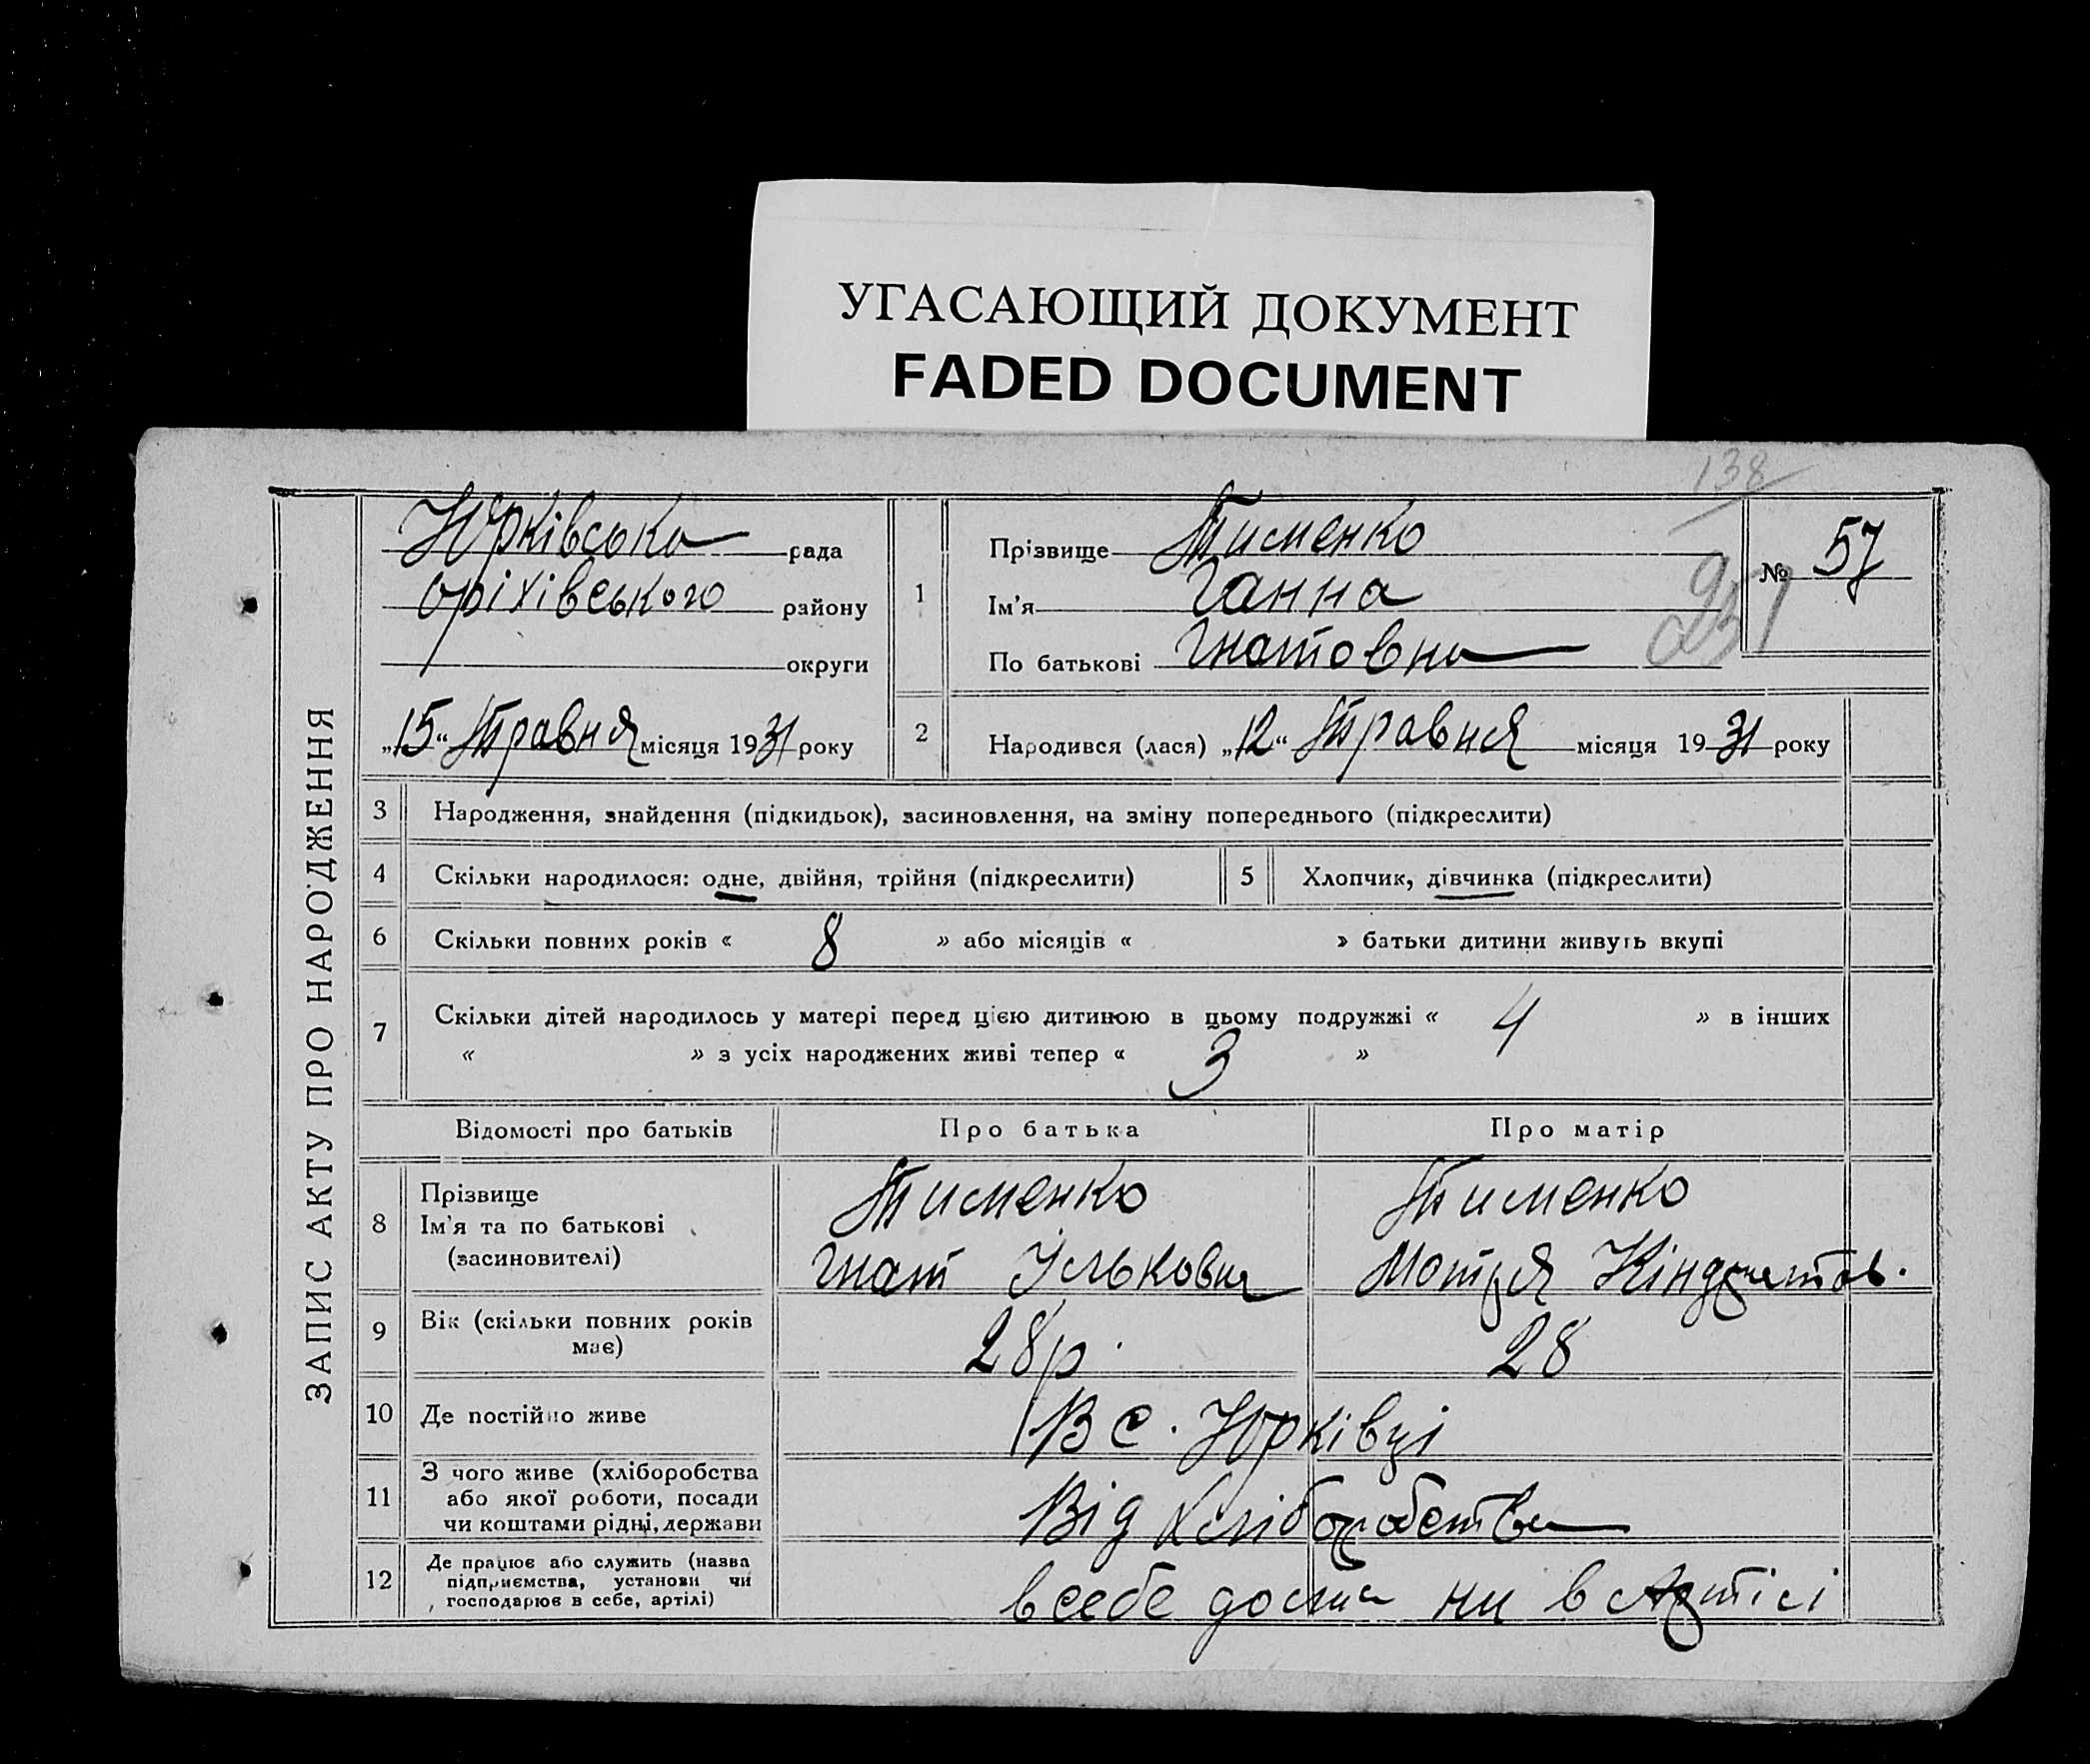 УГАСАЮЩИЙ ДОКУМЕНТ
FADED DOCUMENT
138
ЗАПИС АКТУ ПРО НАРОДЖЕННЯ
Юрківська рада
оріхівського району
округи
„15“ Травня місяця 1931 року
1
Прізвище Тименко
Ім'я Ганна
По батькові Гнатовна
№ 57
2 Народився (лася) „12“ Травня місяця 1931 року
3 Народження, знайдення (підкидьок), засиновлення, на зміну попереднього (підкреслити)
4 Скільки народилося: одне, двійня, трійня (підкреслити) 5 Хлопчик, дівчинка (підкреслити)
6 Скільки повних років « 8 » або місяців « » батьки дитини живуть вкупі
7 Скільки дітей народилось у матері перед цією дитиною в цьому подружжі « 4 » в інших
« » з усіх народжених живі тепер « 3 »
Відомості про батьків Про батька Про матір
8 Прізвище
Ім'я та по батькові
(засиновителі)
Тименко
Гнат Ількович
Тименко
Мотря Кіндратов.
9 Вік (скільки повних років
має)
28 р. 28
10 Де постійно живе В с. Юрківці
11 З чого живе (хліборобства
або якої роботи, посади
чи коштами рідні, держави
Від хліборобства
12 Де працює або служить (назва
підприємства, установи чи
господарює в себе, артілі)
в себе дома ни в Артілі